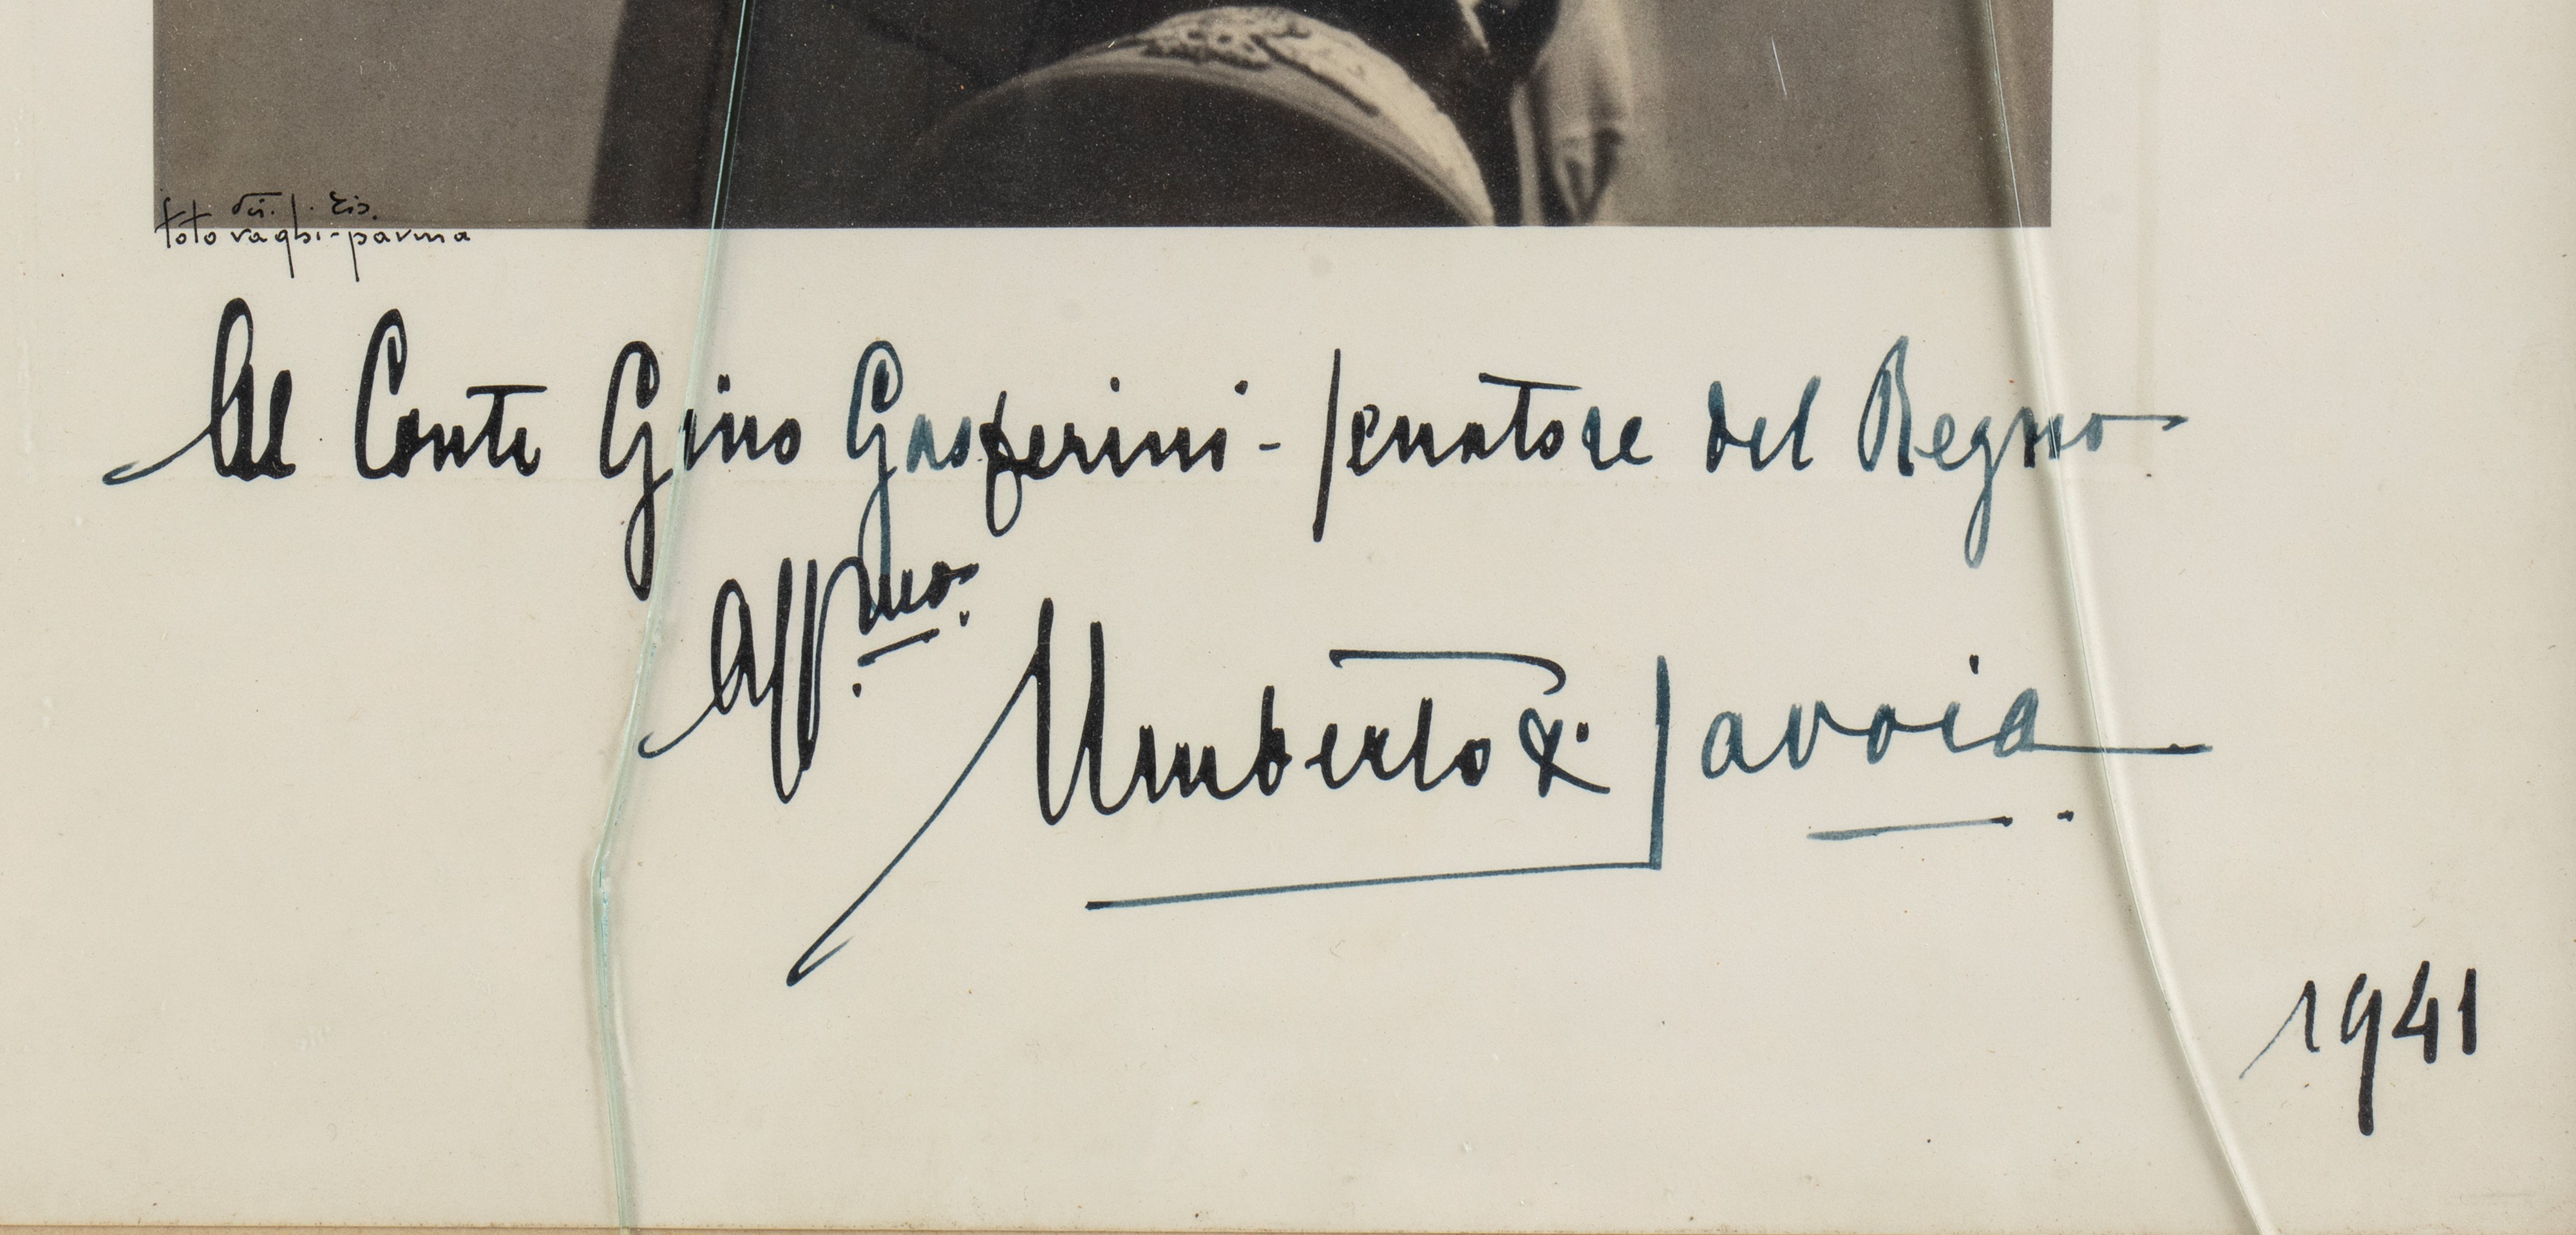 dir. f. ris.
foto vaghi-parma
Al Conte Gino Gasperini - Senatore del Regno
Affmo.
Umberto di Savoia
1941